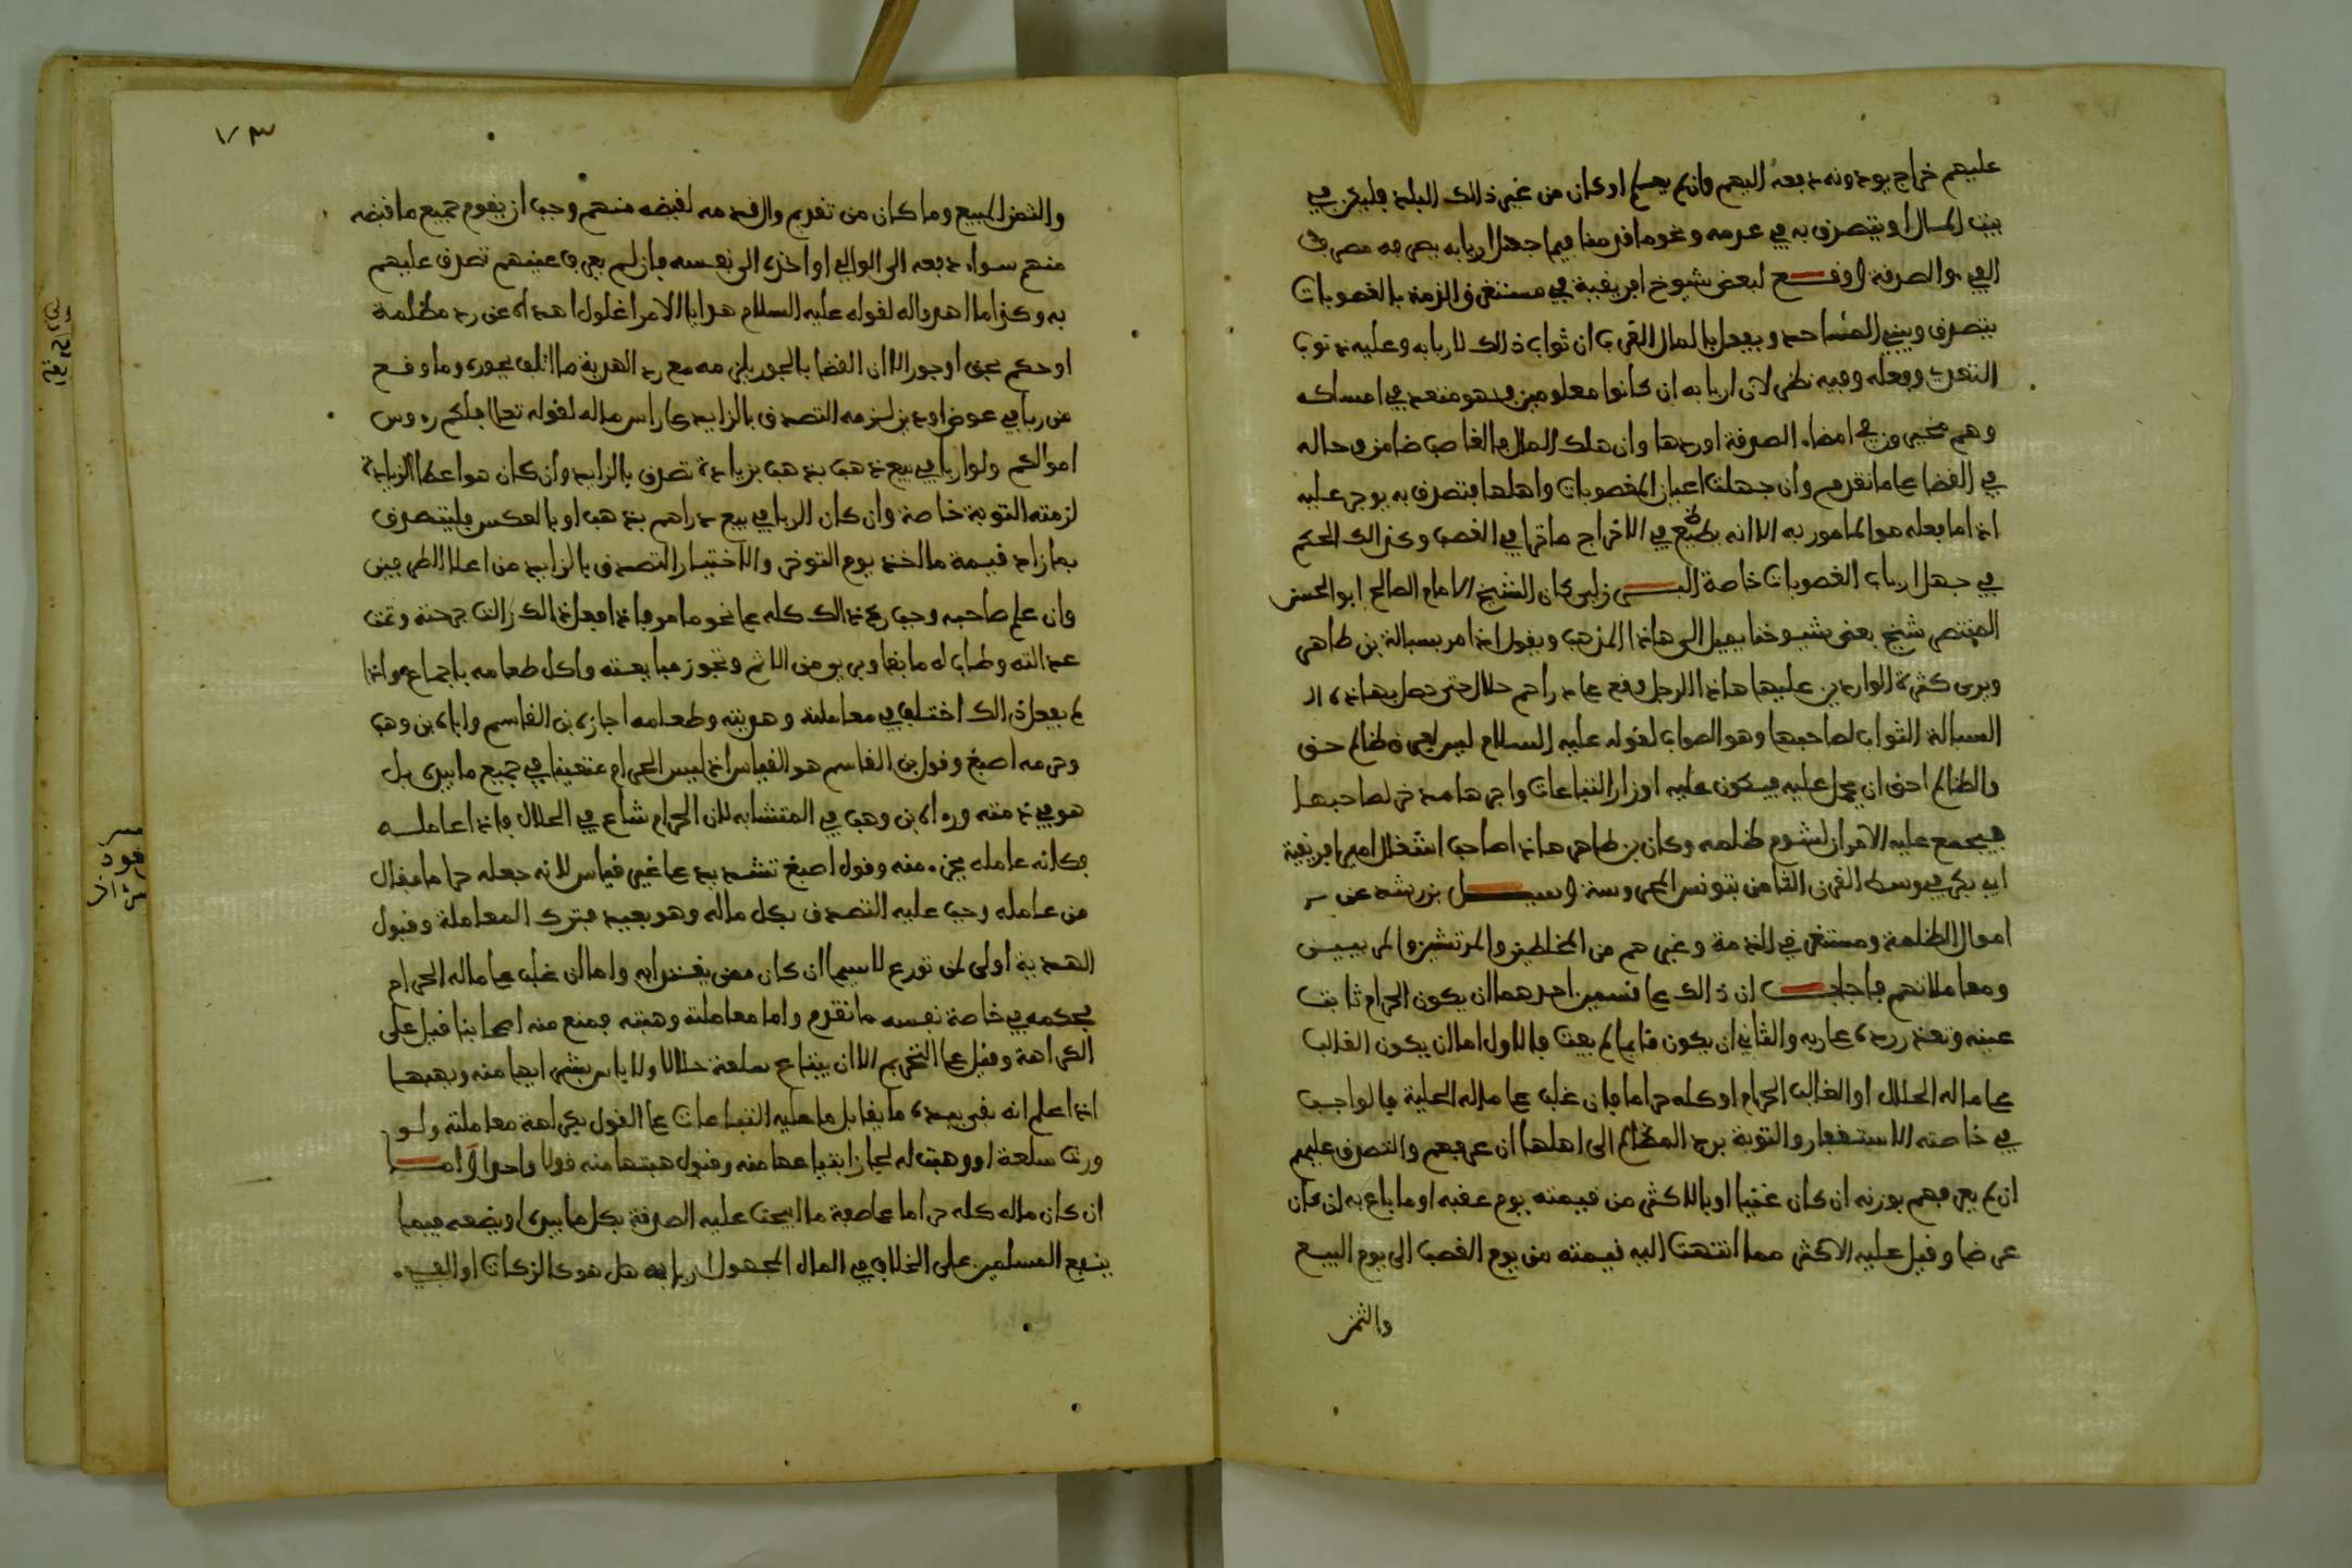 عليهم خراج يودونه دفعه اليهم وان لم يعلم او كان من غير ذلك البلد فليكن في
بيت المال او يتصرف به في عدمه ونحو ما قدمنا فيما جهل اربابه يصرفه مصرف
الفيء والصدقة ووقع لبعض شيوخ افريقية في مستغرق الذمة بالغصوبات
يتصدق ويبني المساجد ويفعل بالمال القرب ان ثواب ذلك لاربابه وعليه ذنوب
التعدي وفعله وفيه نظر لان اربابه ان كانوا معلومين فهو متعد في امساكه
وهم مخيرون في امضاء الصدقة او ردها وان هلك المال فالغاصب ضامن وحاله
في القضا على ما تقدم وان جهلت اعيان المغصوبات واهلها فتصدق به يوجر عليه
اذا ما فعله هو المامور به الا انه في الاخراج ما ترا في الغصب وكذالك الحكم
في جهل ارباب الغصوبات خاصة البرزلي كان الشيخ الامام الصالح ابو الحسن
المنتصر شيخ بعض شيوخنا يميل الى هاذا المذهب ويقول اذا مر بسبالة بن طاهر
ويرى كثرة الواردين عليها هاذا الرجل وقع على دراهم حلال حتى جعل بهاذه الـ
السبالة الثواب لصاحبها وهو الصواب لقوله عليه السلام ليس لعرق ظالم حق
والظالم احق ان يحمل عليه فيكون عليه اوزار التباعات واجرها مدخر لصاحبها
فيجمع عليه الامران لشوم ظلمه وكان بن طاهر هاذا صاحب اشغال امير افريقية
ابي بكر في وسط القرن الثامن بتونس المحروسة وسيل بن رشد عن
اموال الظلمة ومستغرقي الذمة وغيرهم من المخلطين والمرتشين والمربيين
ومعاملاتهم فاجاب ان ذالك على قسمين احدهما ان يكون الحرام ثابت
عينه وتعذر رده على ربه والثاني ان يكون قايما لم يفت فالاول اما ان يكون الغالب
على ماله الحلال او الغالب الحرام او كله حراما فان غلب على ماله الحلية فالواجب
في خاصته الاستغفار والتوبة برد المظالم الى اهلها ان عرفهم والتصدق عليهم
ان لم يعرفهم بوزنه ان كان عينا او بالاكثر من قيمته يوم غصبه او ما باع به ان كان
عرضا وقيل عليه الاكثر مما انتهت اليه قيمته من يوم الغصب الى يوم البيع
والثمن
١٧٣
والثمن المبيع وما كان من تقديم لقبضه منهم وجب ان يقوم جميع ما قبضه
منهم سواء دفعه الى الوالي او اخذه الى نفسه فان لم يعرف عينهم تصدق عليهم
به وكذا ما اهدوا له لقوله عليه السلام هدايا الامرا غلول اهداه عن رد مظلمة
او حكم بحق او جور الا ان القضا بالجور يلزمه مع رد الهدية ما اتلف بجوره وما وقع
من ربا في عوض او دين لزمه التصدق بالزايد على راس ماله لقوله تعالى فلكم رءوس
اموالكم ولو اربا في بيع ذهب بذهب بزيادة تصدق بالزايد وان كان هو اعطا الزيادة
لزمته التوبة خاصة وان كان الربا في بيع دراهم بذهب او بالعكس فليتصدق
بما زاد قيمة ما اخذ يوم التوخر والاختيار التصدق بالزايد من اعلا الطرفين
وان علم صاحبه وجب رد ذالك كله على نحو ما مر فاذا فعل ذالك زالت جرحته وتمت
عدالته وطاب له ما بقا وبرىء من الاثم وتجوز مبايعته واكل طعامه باجماع واذا
لم يفعل ذالك اختلف في معاملته وهديته وطعامه اجازه بن القاسم واباه بن وهب
وحرمه اصبغ وقول بن القاسم هو القياس اذ ليس الحرام متعينا في جميع ما بيده بل
هو في ذمته ورءاه بن وهب في المتشابه لان الحرام شاع في الحلال فاذا عامله
فكانه عامله بجزء منه وقول اصبغ تشديد على غير قياس لانه جعله حراما فقال
من عامله وجب عليه التصدق بكل ماله وهو بعيد فترك المعاملة وقبول
الهدية اولى لمن تورع لاسيما ان كان ممن يقتدا به واما ان غلب على ماله الحرام
فحكمه في خاصة نفسه ما تقدم واما معاملته وهبته فمنع منه اصحابنا قيل على
الكراهة وقيل على التحريم الا ان يبتاع سلعة حلالا ولا باس بشرايها منه ويهبها
اذا علم انه بقي بيده ما يقابل ما عليه التباعات على القول بكراهة معاملته ولو
ورث سلعة او وهبت له لجاز ابتياعها منه وقبول هبتها منه قولا واحدا واما
ان كان ماله كله حراما على صفة ما اجتمعت عليه الصدقة بكل ما بيده او يضعه فيما
ينفع المسلمين على الخلاف في المال المجهول اربابه هل هو كالزكاة او الفيء